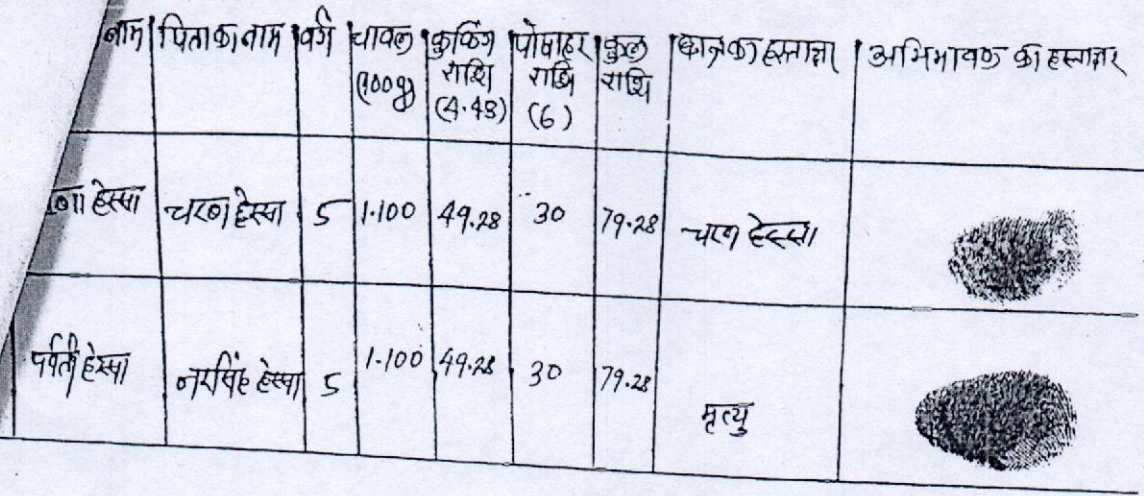 नाम पिता का नाम वर्ग चावल (100g) कुकिंग राशि (4.48) पोषाहर राशि (6) कुल राशि छात्र का हस्ताक्षर अभिभावक का हस्ताक्षर
हेस्सा चरण हेस्सा 5 1.100 49.28 30 79.28 चरण हेस्सा
पर्वती हेस्सा नरसिंह हेस्सा 5 1.100 49.28 30 79.28 मृत्यु